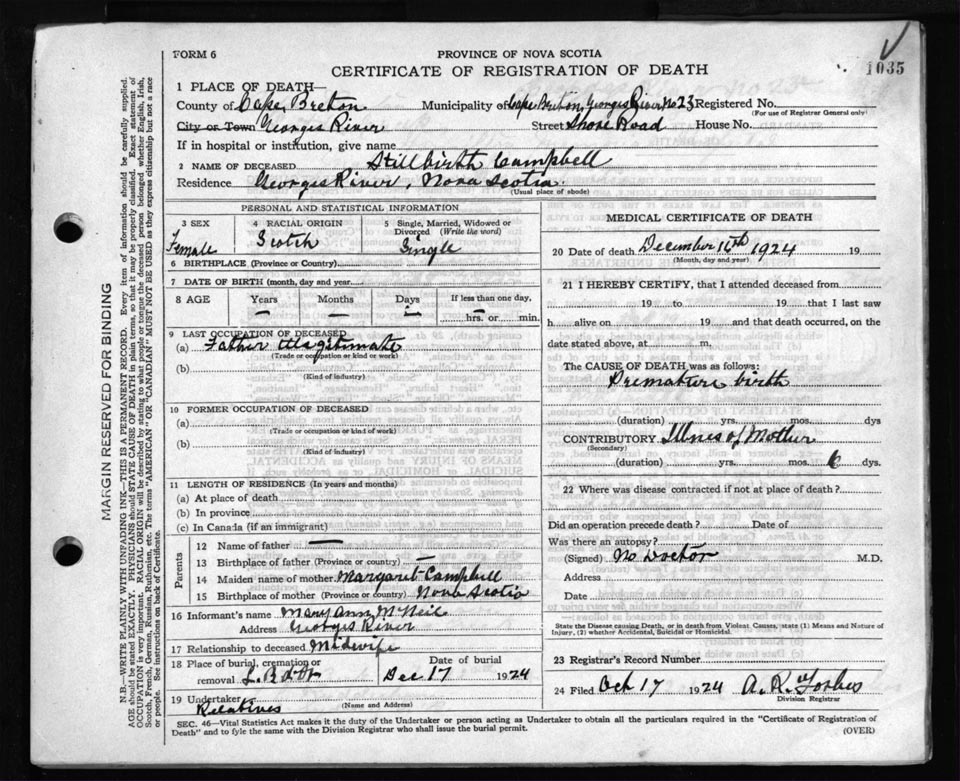 FORM 6
PROVINCE OF NOVA SCOTIA
CERTIFICATE OF REGISTRATION OF DEATH
1035
1 PLACE OF DEATH—
County of Cape Breton Municipality of Cape Breton, Georges River No 23 Registered No.
(For use of Registrar General only)
City or Town Georges River Street Shore Road House No.
If in hospital or institution, give name
2 NAME OF DECEASED Stillbirth Campbell
Residence Georges River, Nova Scotia
(Usual place of abode)
PERSONAL AND STATISTICAL INFORMATION
3 SEX 4 RACIAL ORIGIN 5 Single, Married, Widowed or Divorced (Write the word)
Female Scotch Single
6 BIRTHPLACE (Province or Country)
7 DATE OF BIRTH (month, day and year)
8 AGE Years Months Days If less than one day,
— — — — hrs. or min.
9 LAST OCCUPATION OF DECEASED
(a) Father Illegitimate
(Trade or occupation or kind of work)
(b)
(Kind of industry)
10 FORMER OCCUPATION OF DECEASED
(a)
(Trade or occupation or kind of work)
(b)
(Kind of industry)
11 LENGTH OF RESIDENCE (In years and months)
(a) At place of death
(b) In province
(c) In Canada (if an immigrant)
Parents
12 Name of father —
13 Birthplace of father (Province or country) —
14 Maiden name of mother Margaret Campbell
15 Birthplace of mother (Province or country) Nova Scotia
16 Informant's name Mary Ann McNeil
Address Georges River
17 Relationship to deceased Midwife
18 Place of burial, cremation or removal Date of burial
Dec 17 1924
19 Undertaker
(Name and Address)
Relatives
MEDICAL CERTIFICATE OF DEATH
20 Date of death December 16th 1924 19
(Month, day and year)
21 I HEREBY CERTIFY, that I attended deceased from
19 to 19 that I last saw
h alive on 19 and that death occurred, on
date stated above, at m.
The CAUSE OF DEATH was as follows:
Premature birth
(duration) yrs. mos. dys
CONTRIBUTORY Illnes of Mother
(Secondary)
(duration) yrs. mos. 6 dys.
22 Where was disease contracted if not at place of death?
Did an operation precede death? Date of
Was there an autopsy?
(Signed) No Doctor M.D.
Address
Date
State the Disease causing Death, or in death from Violent Causes, state (1) Means and Nature of
Injury, (2) whether Accidental, Suicidal or Homicidal.
23 Registrar's Record Number
24 Filed Oct 17 1924 A. R. Forbes
Division Registrar
SEC. 46—Vital Statistics Act makes it the duty of the Undertaker or person acting as Undertaker to obtain all the particulars required in the "Certificate of Registration of
Death" and to fyle the same with the Division Registrar who shall issue the burial permit. (OVER)
MARGIN RESERVED FOR BINDING
N.B.—WRITE PLAINLY WITH UNFADING INK—THIS IS A PERMANENT RECORD. Every item of information should be carefully supplied.
AGE should be stated EXACTLY. PHYSICIANS should STATE CAUSE OF DEATH in plain terms, so that it may be properly classified. Exact statement of
OCCUPATION is very important. RACIAL ORIGIN will be described by stating to what people or tongue the deceased person belonged, whether English, Irish,
Scotch, French, German, Russian, Ruthenian, etc. The terms "AMERICAN" OR "CANADIAN" MUST NOT BE USED as they express citizenship but not a race
or people. See instructions on back of Certificate.